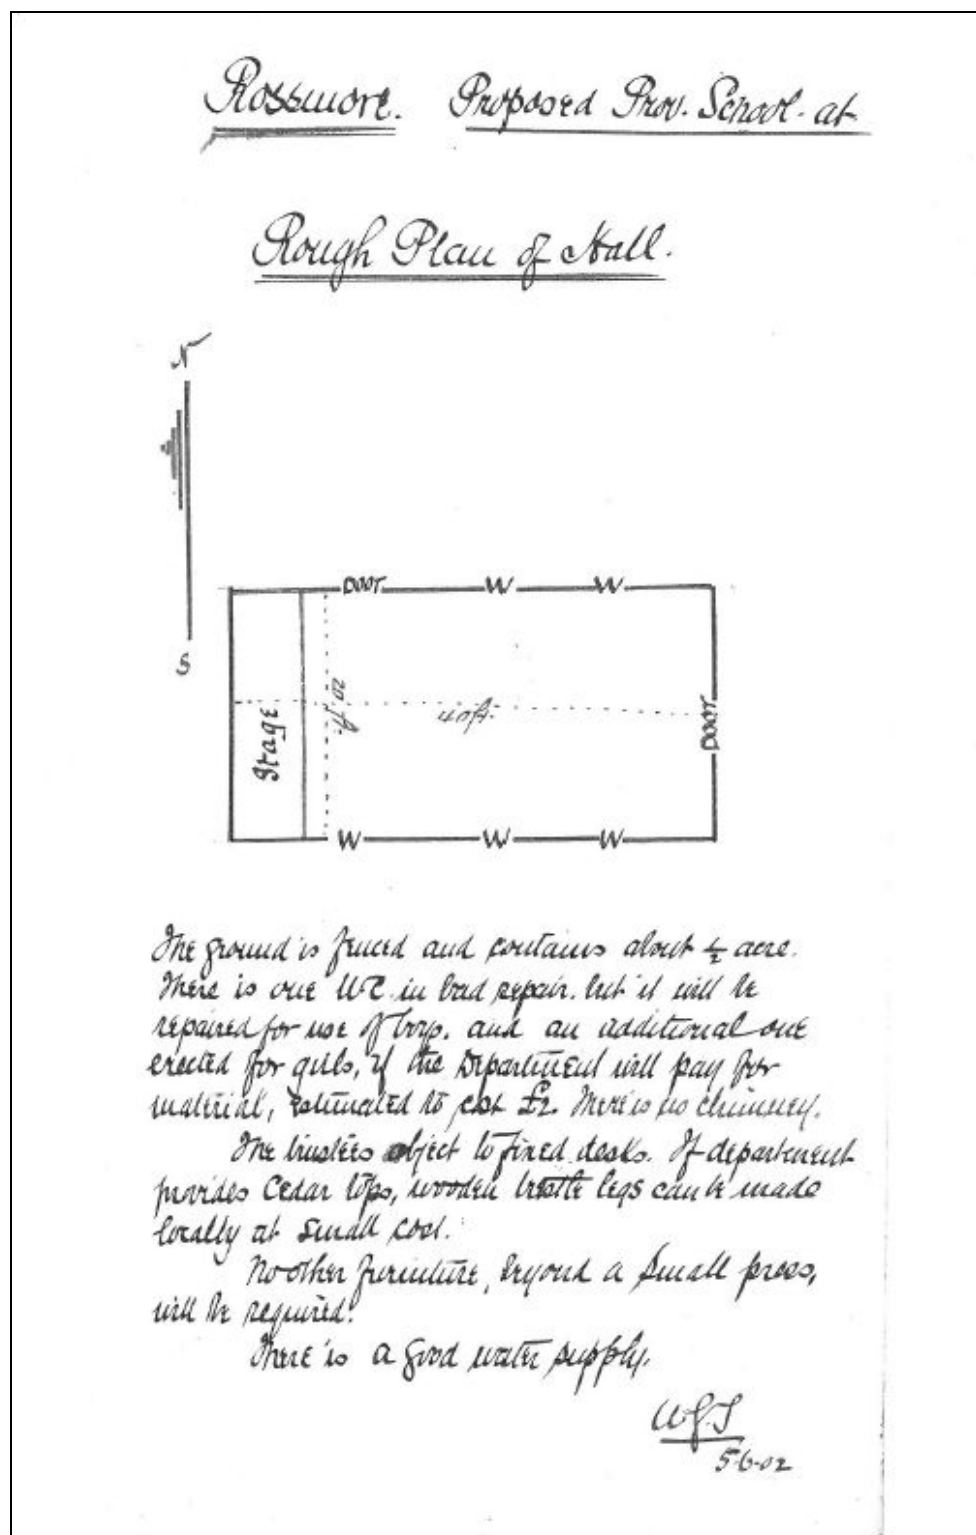 Rossmore. Proposed Prov. School. at
Rough Plan of Hall.
N
S
DOOR W W
Stage
20 ft.
40ft.
DOOR
W W W
The ground is fenced and contains about ½ acre.
There is one W.C. in bad repair. but it will be
repaired for use of boys. and an additional one
erected for girls, if the Department will pay for
material, estimated to cost £2. There is no chimney.
The trustees object to fixed desks. If department
provides Cedar tops, wooden trestle legs can be made
locally at small cost.
No other furniture, beyond a small press,
will be required.
There is a good water supply.
5-6-02